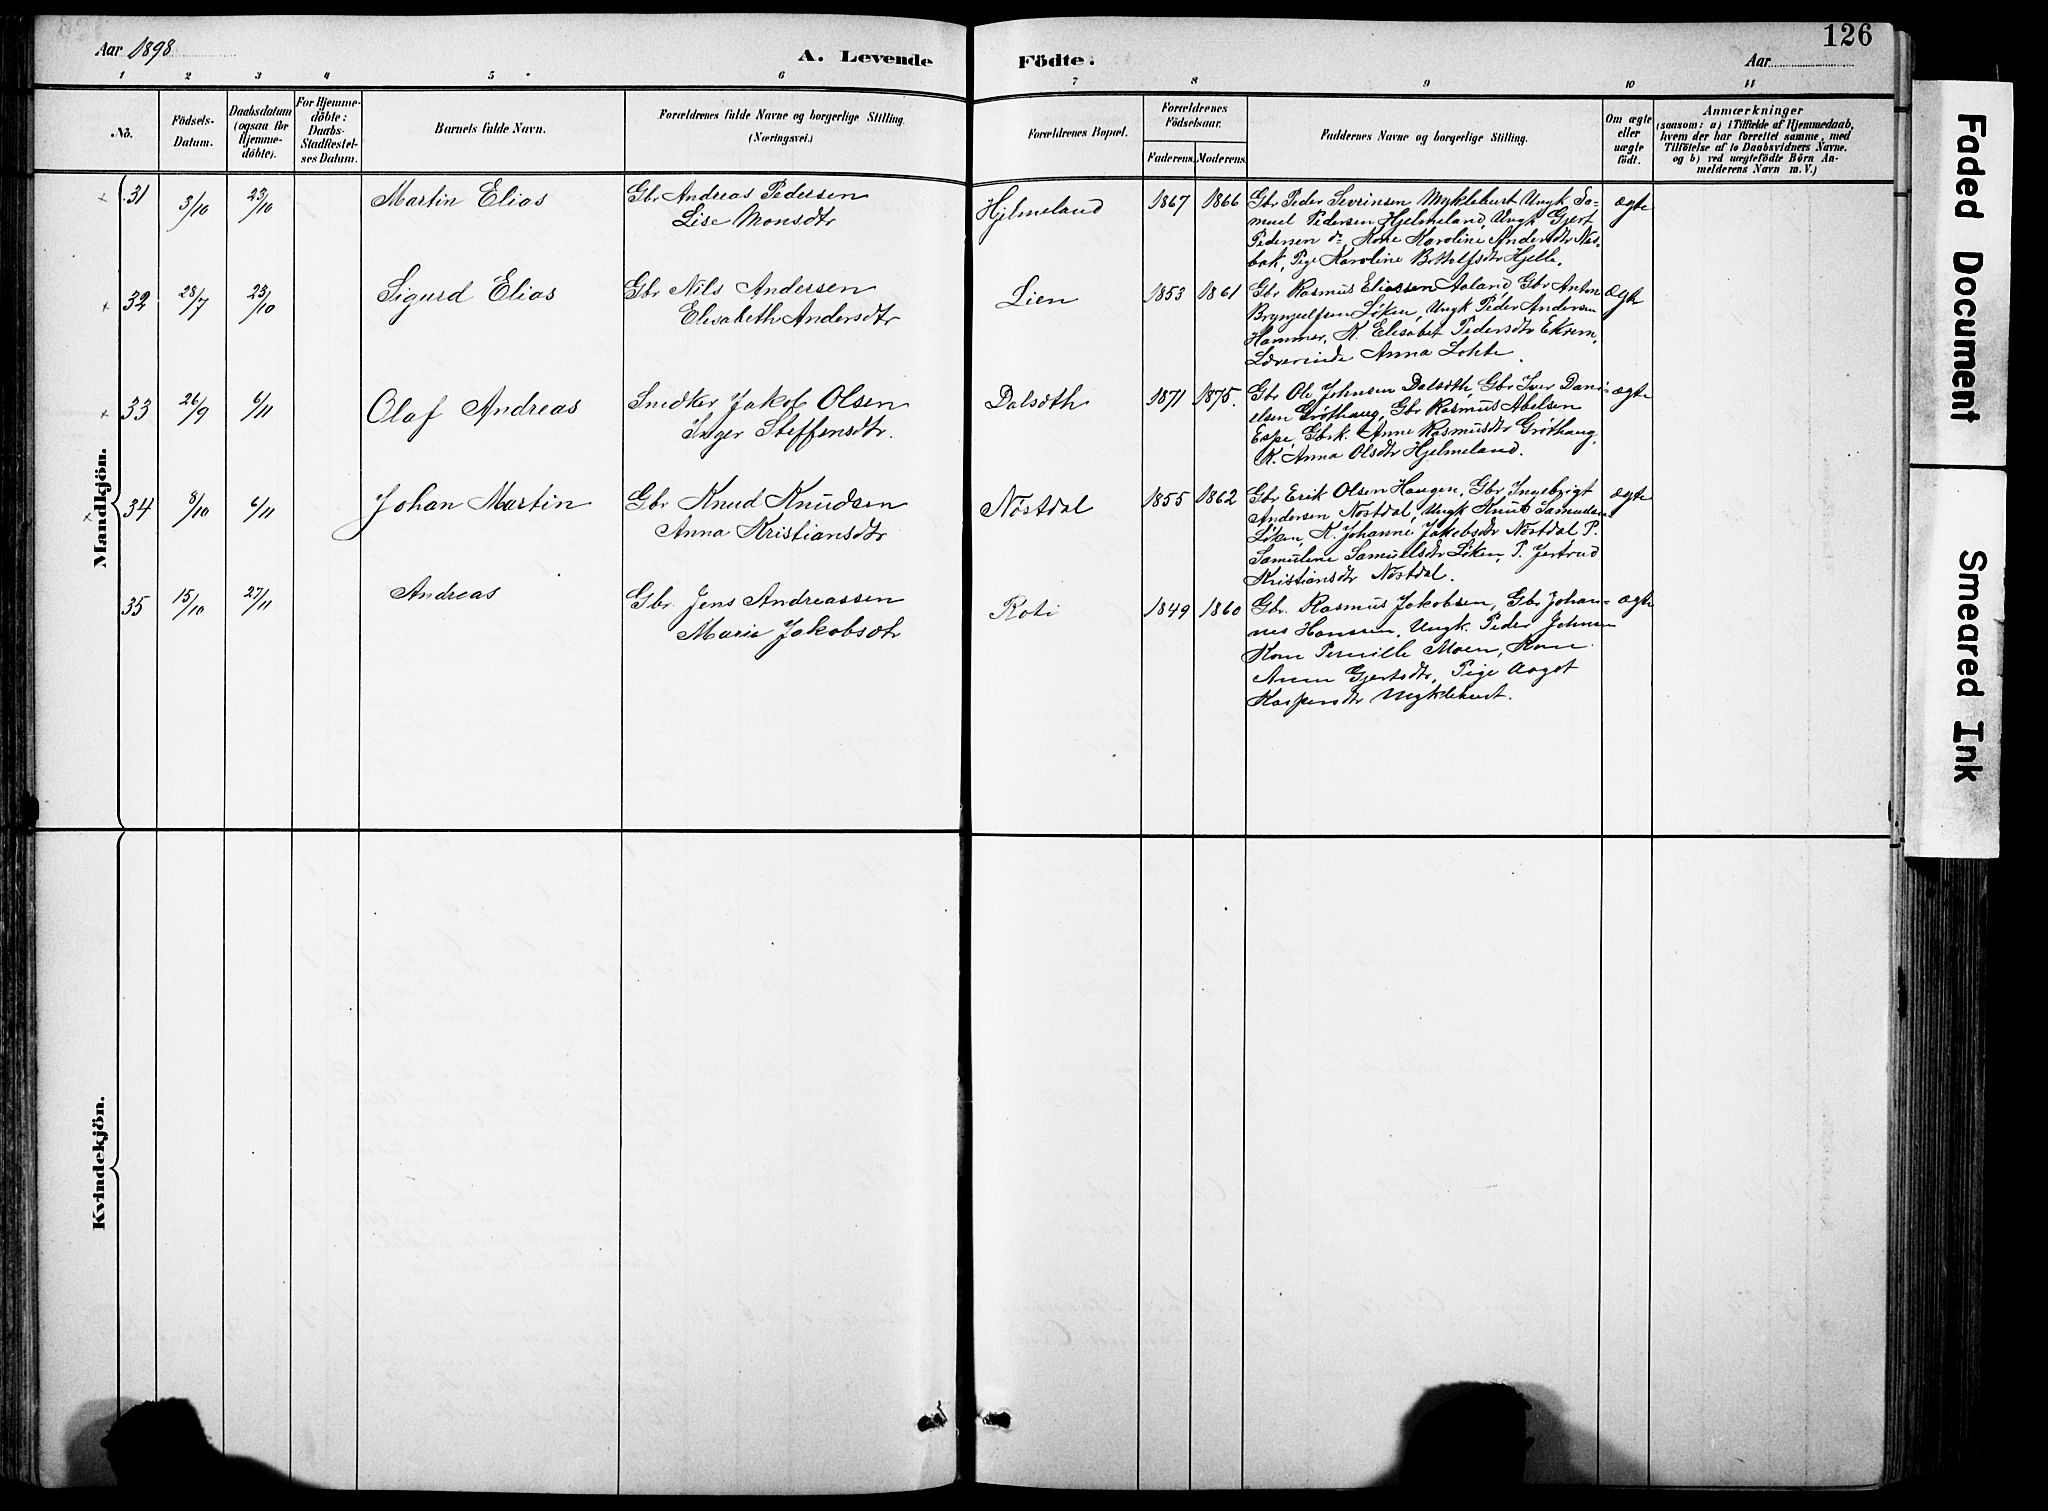 126
Aar 1898
A. Levende
Födte.
Aar
1 2 3 4 5 6 7 8 9 10 11
No.
Födsels-Datum.
Daabsdatum (ogsaa for Hjemme-döbte).
For Hjemme-döbte: Daabs-Stadfæstel-ses Datum.
Barnets fulde Navn.
Forældrenes fulde Navne og borgerlige Stilling.
(Næringsvei.)
Forældrenes Bopæl.
Forældrenes Födselsaar.
Faderens. Moderens.
Faddernes Navne og borgerlige Stilling.
Om ægte eller uægte födt.
Anmærkninger
(saasom: a) i Tilfælde af Hjemmedaab,
hvem der har forrettet samme, med
Tilföielse af to Daabsvidners Navne.
og b) ved uægtefödte Börn An-
melderens Navn m. V.)
Mandkjön.
31 3/10 23/10 Martin Elias Gbr Andreas Pedersen Hjelmeland 1867 1866 Gbr Peder Sevrinsen Myklebust Ungk Sa- ægte
Lise Monsdtr muel Pedersen Hjelmeland, Ungk Gjert
Pedersen do Kone Karoline Andersdtr Nes-
bak, Pige Karoline Bottolfsdtr Hjelle.
32 28/7 23/10 Sigurd Elias Gbr Nils Andersen Lien 1853 1861 Gbr Rasmus Eliassen Aaland Gbr Anton ægte
Elisabeth Andersdtr Brynjulfsen Løken, Ungk Peder Andersen
Hammer, K. Elisabet Pedersdtr Ekrem,
Lærerinde Anna Lohte.
33 26/9 6/11 Olaf Andreas Snedker Jakob Olsen Dalsøth 1871 1875. Gbr Ole Johnsen Dalsøth, Gbr Iver Dani- ægte
Inger Steffensdtr. elsen Grøthaug, Gbr Rasmus Abelsen
Espe, Gbrk. Anne Rasmusdtr Grøthaug,
K. Anna Olsdtr Hjelmeland.
34 8/10 6/11 Johan Martin Gbr Knud Knudsen Nøstdal 1855 1862 Gbr Erik Olsen Haugen, Gbr Ingebrigt ægte
Anna Kristiansdtr Andersen Nøstdal, Ungk Knut Samuelsen
Løken, K. Johanne Jakobsdtr Nøstdal P.
Samuline Samuelsdtr Løken, P. Jertrud
Kristiansdtr Nøstdal.
35 15/10 27/11 Andreas Gbr. Jens Andreassen Roti 1849 1860 Gbr. Rasmus Jakobsen, Gbr Johan- ægte
Marie Jakobsdtr nes Hanssen, Ungk. Peder Johnsen
Kone Pernille Moen, Kone
Anne Gjertsdtr, Pige Aagot
Kaspersdtr Myklebust.
Kvindekjön.
Faded Document
Smeared Ink